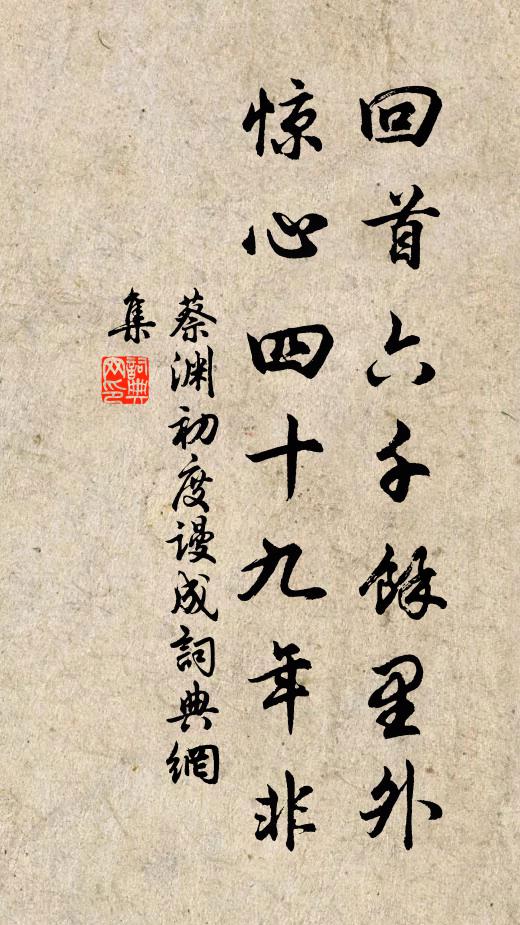 回首六千餘里外
惊心四十九年非
蔡渊初度谩成詞典網
集
詞典
网印